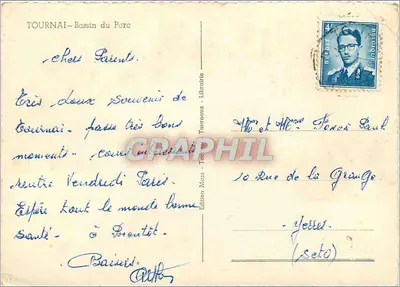 TOURNAI - Bassin du Parc
Chers Parents.
Très doux souvenir de
Tournai - passe très bons
moments -
rentre Vendredi Paris.
Espère tout le monde bonne
santé - à Bientôt.
Baisers
Edition Mass - Tournai - Librairie
4F
BELGIQUE
CRAPHIL
Mr et Mme Paul
10 Rue de la Grange
Yerres
(S et O)